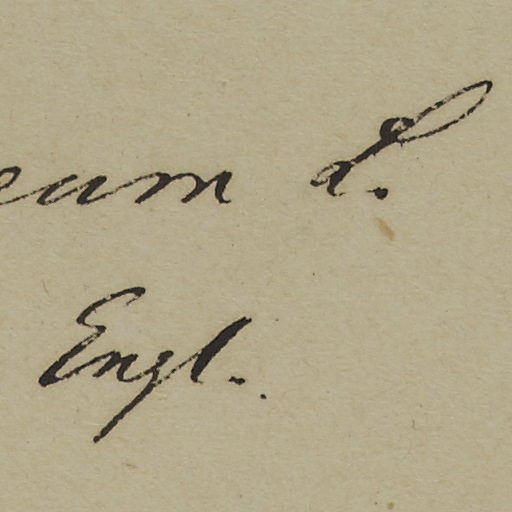 eum L.
Engl.